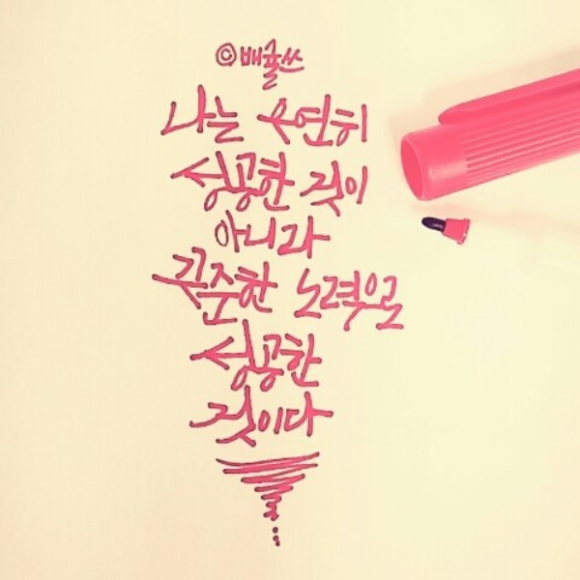 ©배귤쓰
나는 우연히
성공한 것이
아니라
꾸준한 노력으로
성공한
것이다